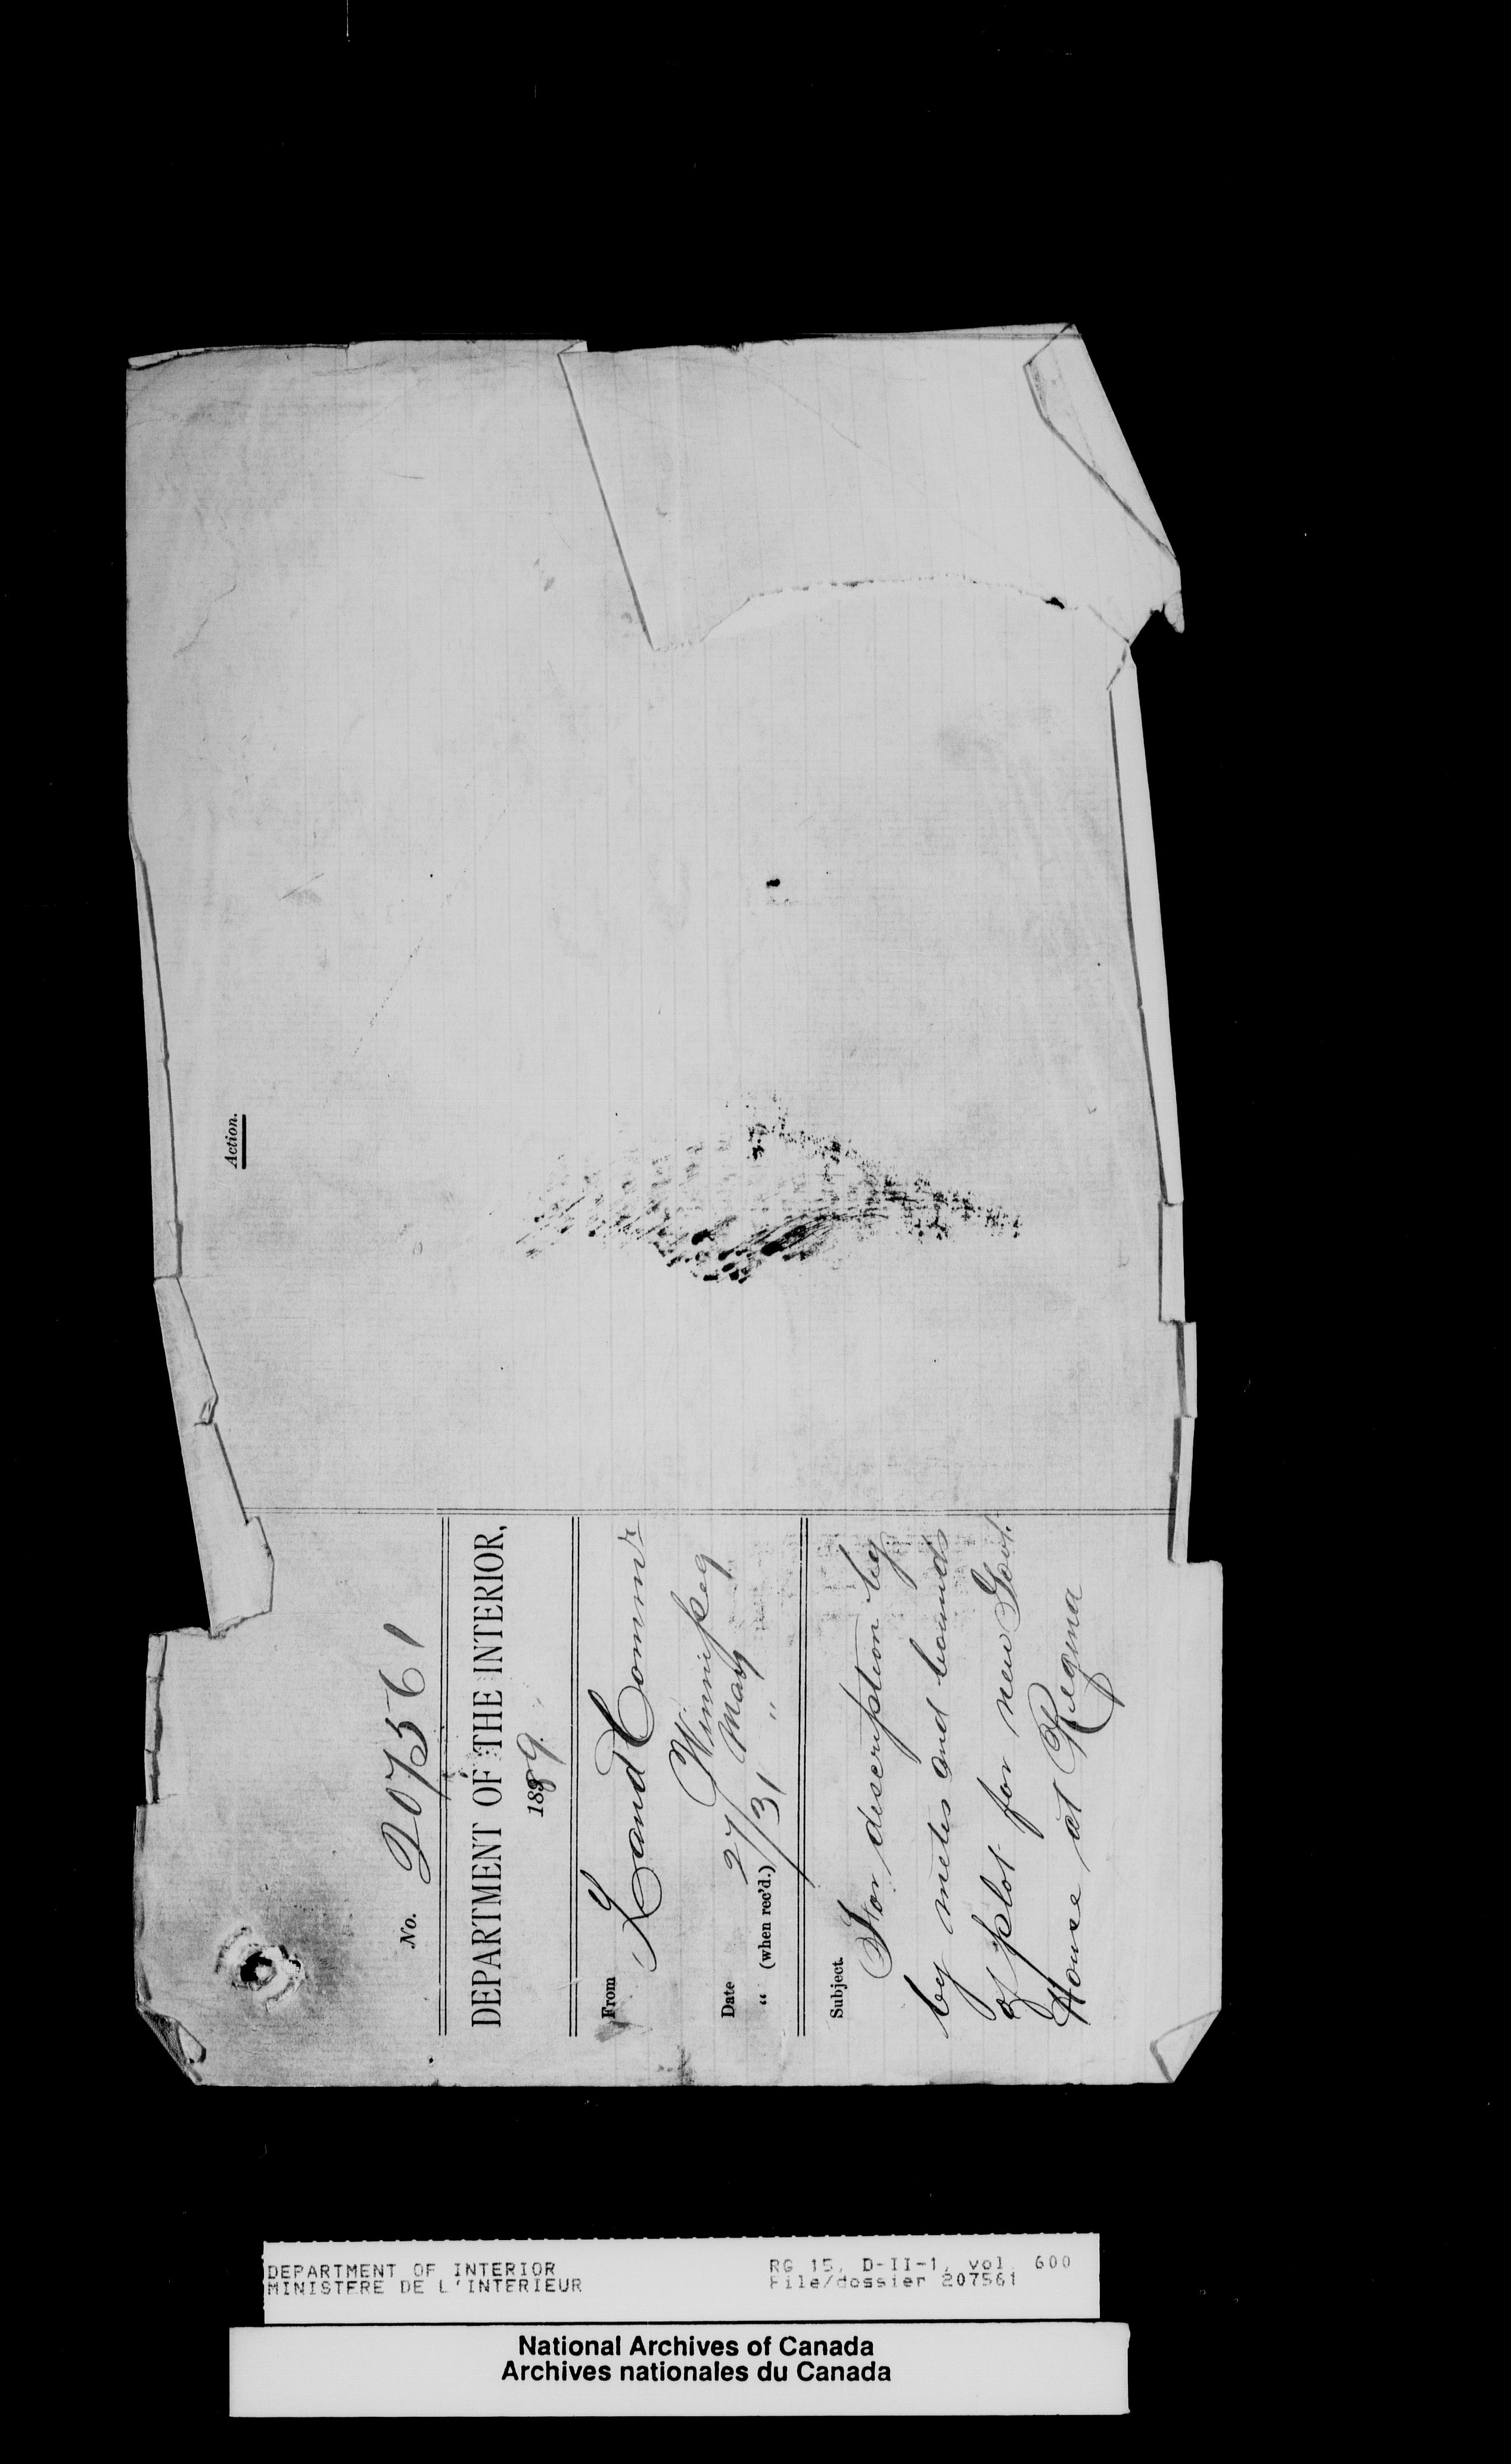 Action.
No. 207561
DEPARTMENT OF THE INTERIOR,
1889.
From Land Commr
Winnipeg
Date 27 May
" (when rec'd.) 31 "
Subject.
For description by
by metes and bounds
of plot for new Govt.
House at Regina
DEPARTMENT OF INTERIOR
MINISTERE DE L'INTERIEUR
RG 15, D-II-1, vol. 600
File/dossier 207561
National Archives of Canada
Archives nationales du Canada